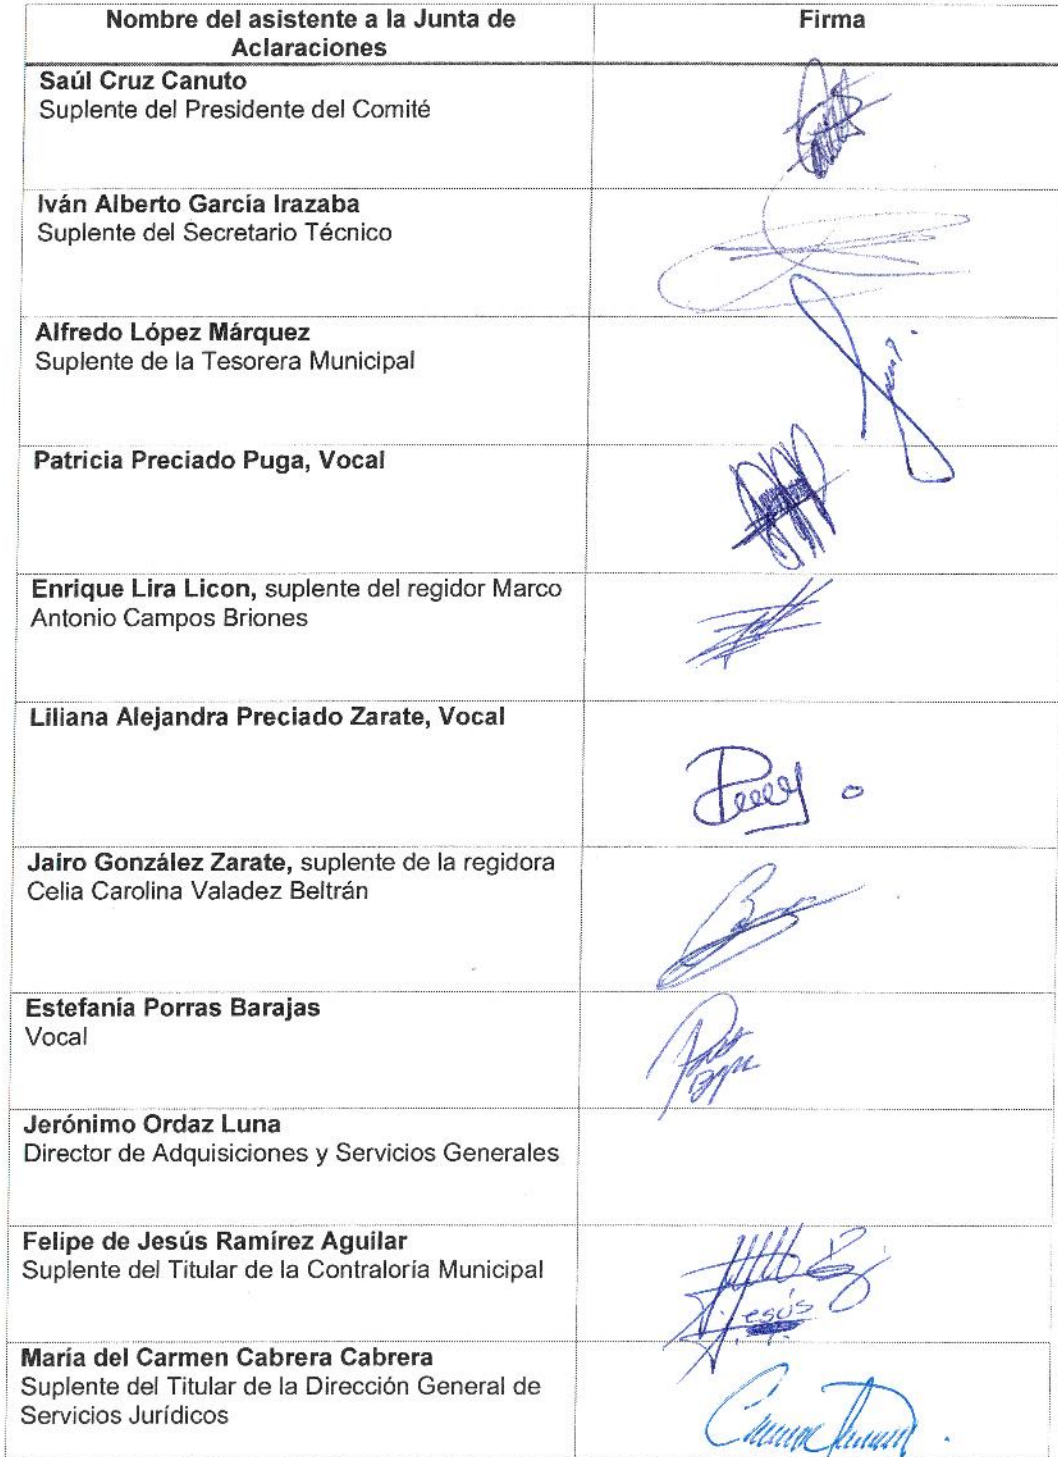 Nombre del asistente a la Junta de
Aclaraciones
Firma
Saúl Cruz Canuto
Suplente del Presidente del Comité
Iván Alberto García Irazaba
Suplente del Secretario Técnico
Alfredo López Márquez
Suplente de la Tesorera Municipal
Patricia Preciado Puga, Vocal
Enrique Lira Licon, suplente del regidor Marco
Antonio Campos Briones
Liliana Alejandra Preciado Zarate, Vocal
Jairo González Zarate, suplente de la regidora
Celia Carolina Valadez Beltrán
Estefanía Porras Barajas
Vocal
Jerónimo Ordaz Luna
Director de Adquisiciones y Servicios Generales
Felipe de Jesús Ramírez Aguilar
Suplente del Titular de la Contraloría Municipal
Jesús
María del Carmen Cabrera Cabrera
Suplente del Titular de la Dirección General de
Servicios Jurídicos